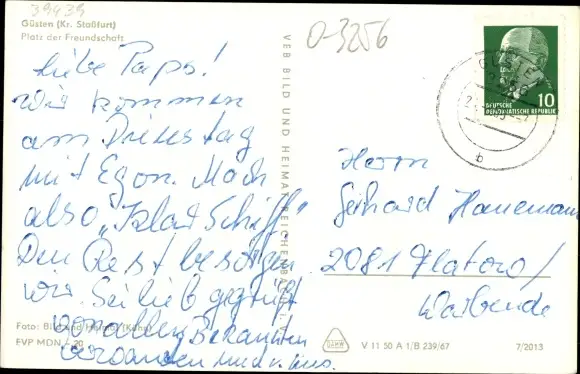 39439
Güsten (Kr. Staßfurt)
Platz der Freundschaft
Liebe Paps!
Wir kommen
am Dienstag
mit Egon. Mach
also „Klar Schiff"
Den Rest besorgen
wir. Sei lieb gegrüßt
von allen Bekannten
Verwandten und v. uns.
Foto: Bild und Heimat (Kühn)
EVP MDN –,20
VEB BILD UND HEIMAT REICHENBACH I. V.
0-3256
DEUTSCHE
DEMOKRATISCHE REPUBLIK
10
b
Herrn
Gerhard Hanemann
2081
V 11 50 A 1/B 239/67
7/2013